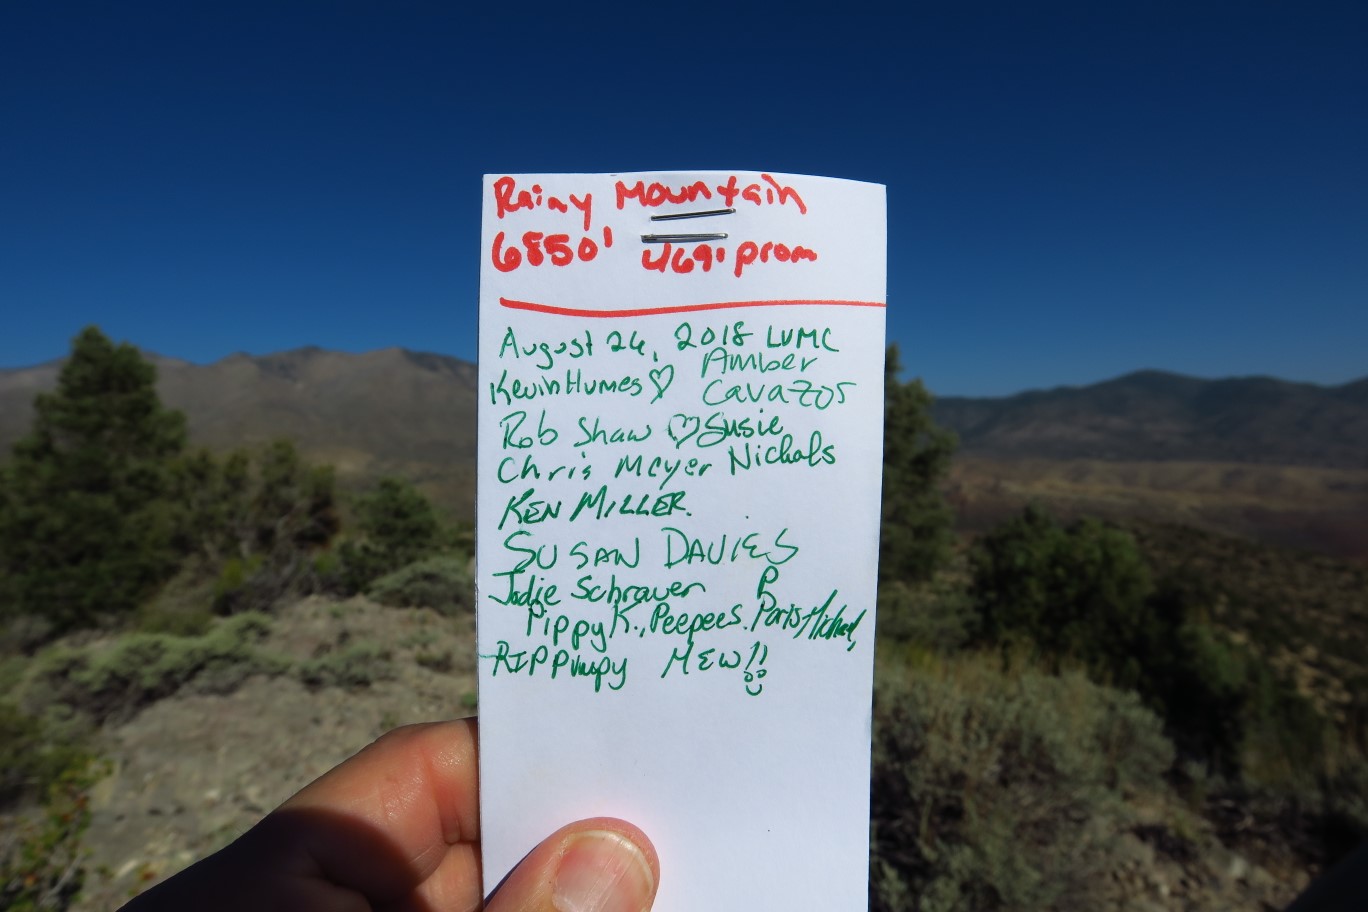 Rainy Mountain
6850' 469' prom
August 26, 2018 LVMC
Kevin Humes ♡ Amber Cavazos
Rob Shaw ♡ Susie Nichols
Chris Meyer
KEN MILLER.
SUSAN DAVIES
Jodie Schraven P
Pippy K., Peepees. Paris Michael,
RIP Pimpy MEW!!